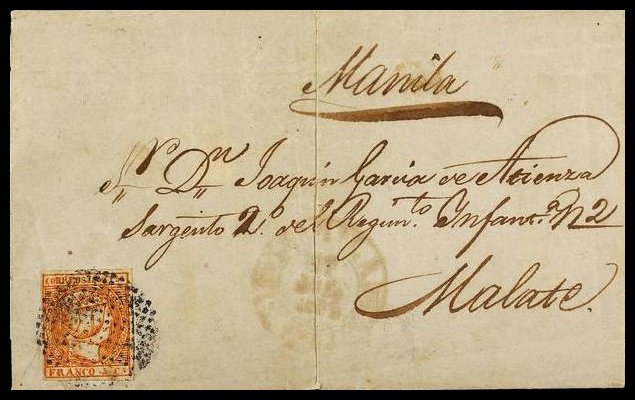 Manila
Sr. Dn. Joaquín García de Atienza
Sargento 2o. del Regimto. Infanta. N 2
Malate.
CORREOS
FRANCO